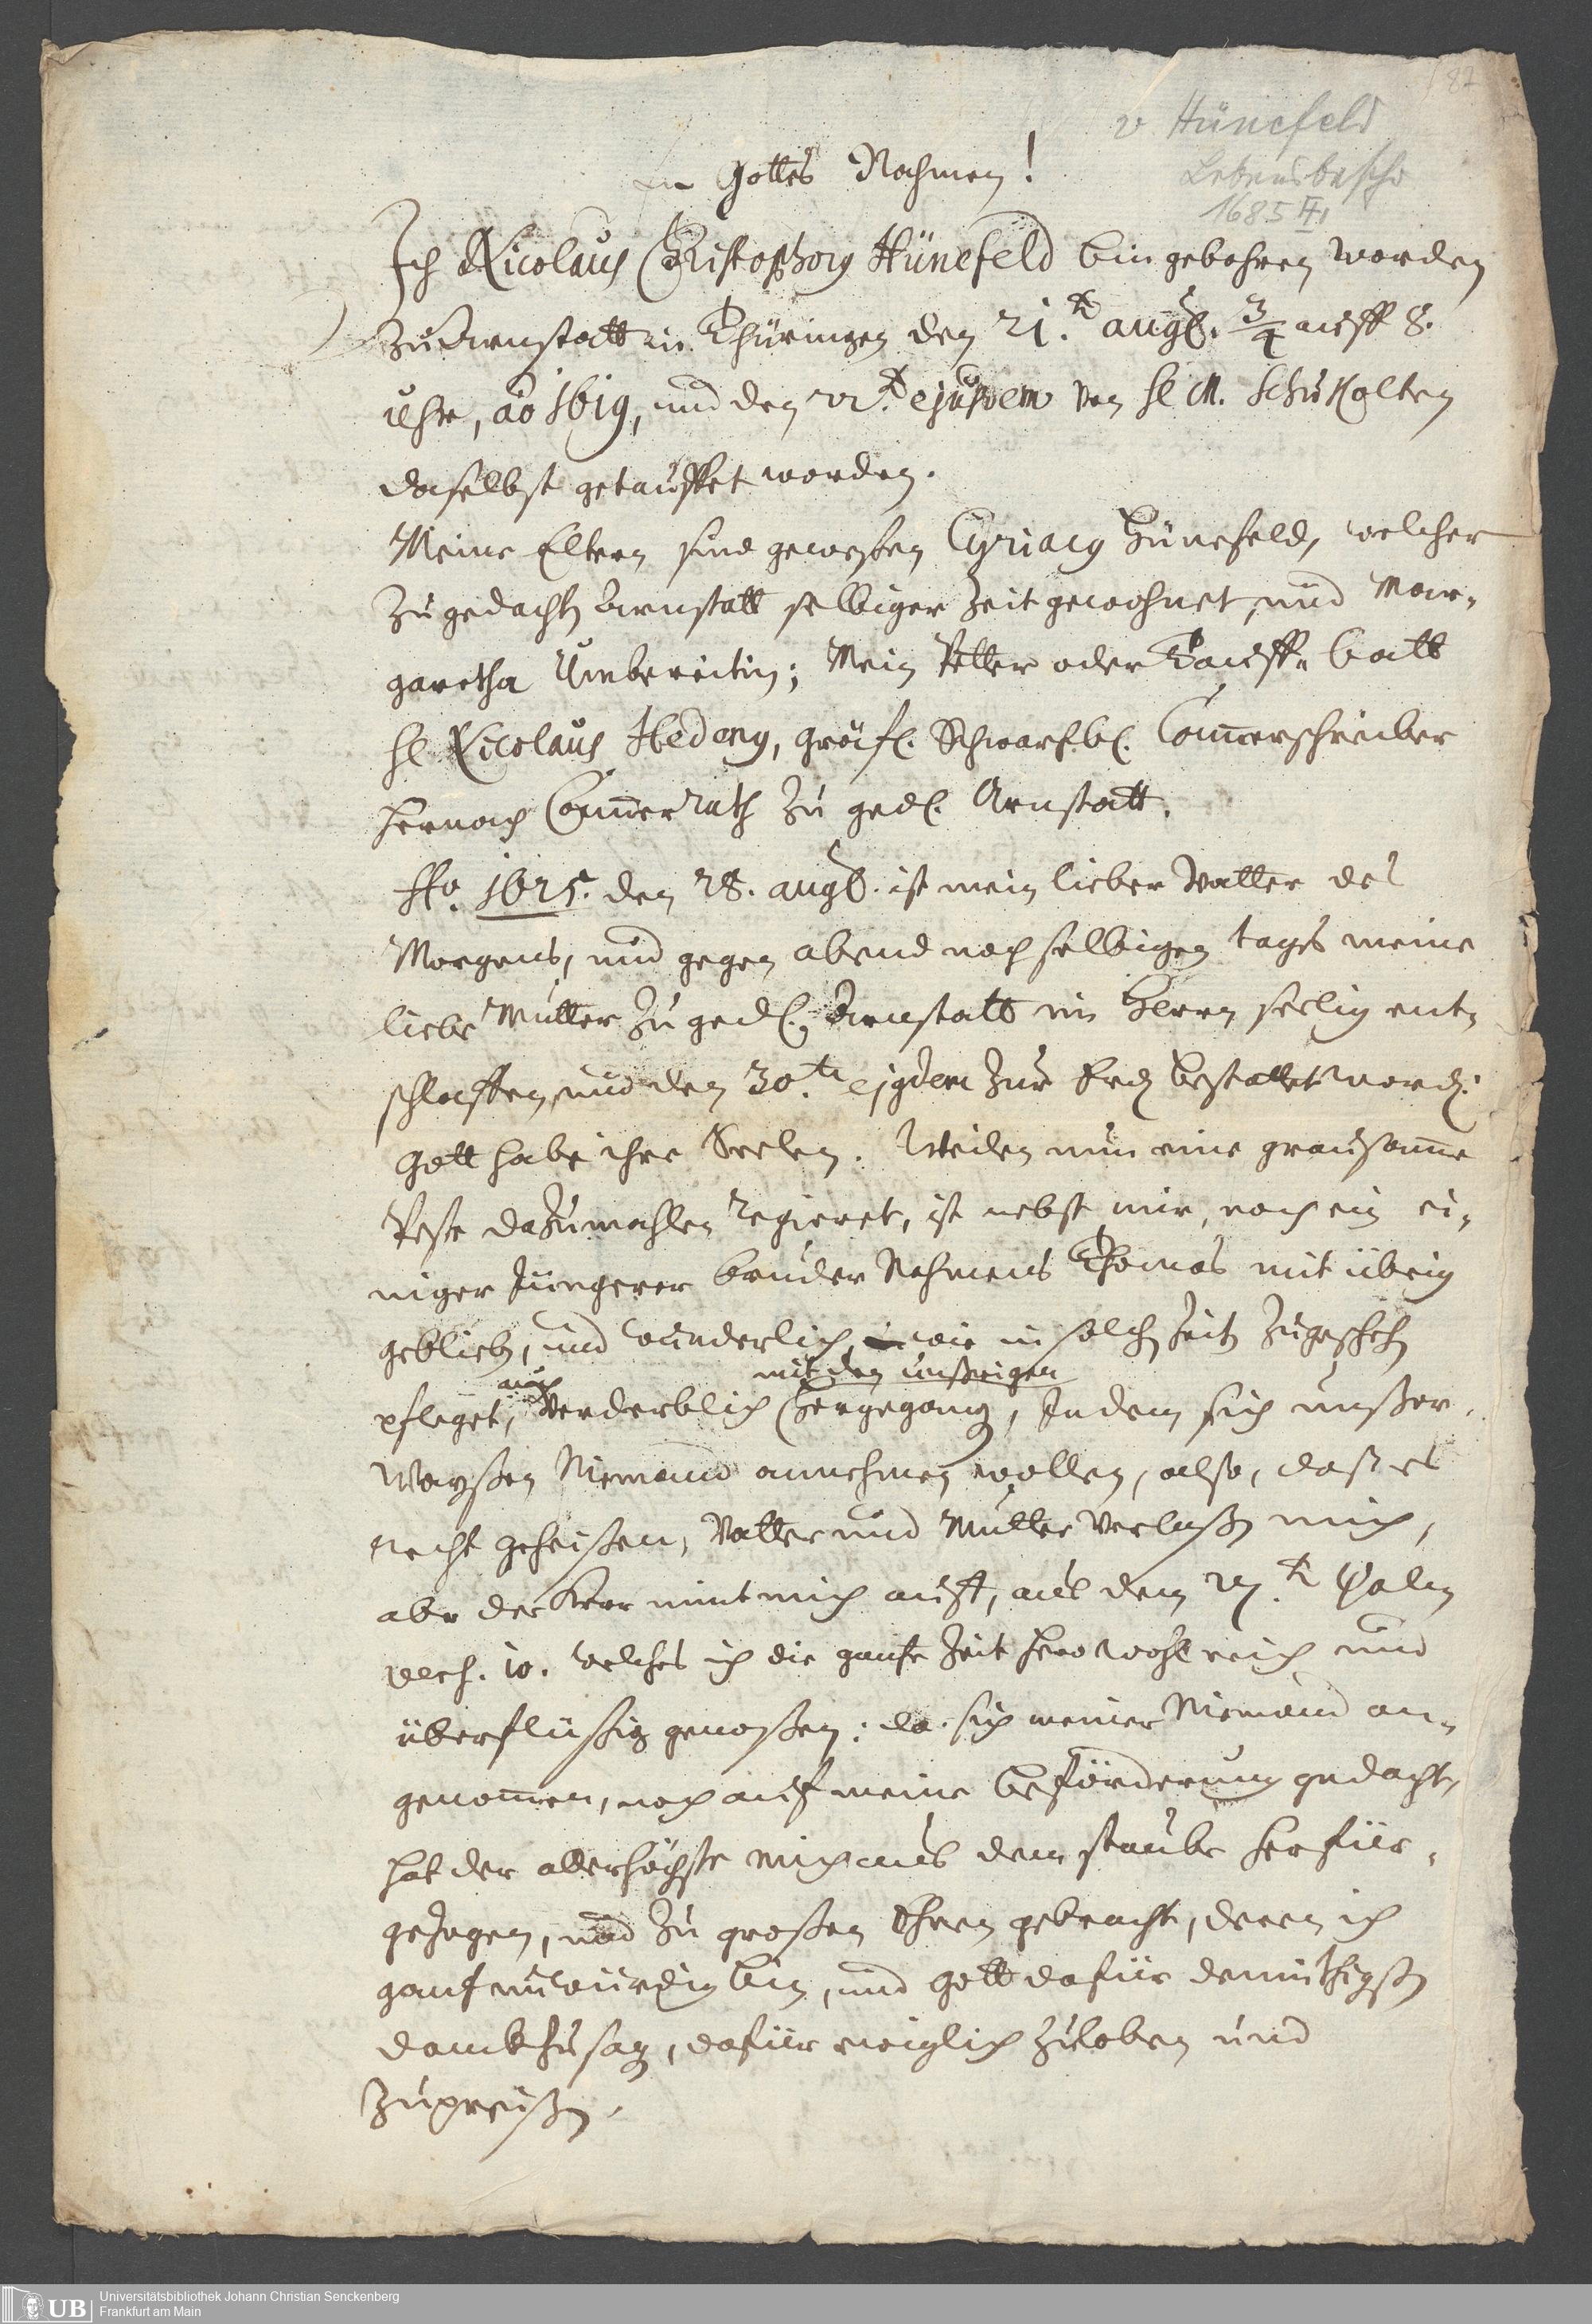 82
v Hünefeld
Lebensbeschr
1685 II,
In Gottes Nahmen!
Ich Nicolaus Christophorg Hünefeld bin gebohren worden
Zu Arnstatt in Thüringen den 21.t augl. 3/4 auff 8.
uhr, ao 1619, und den 22.t ejusdem von H. M. Schukolten
daselbst getauffet worden.
Meine Eltern sind gewesen Cyriacg Hünefeld, welcher
zu gedachtn Arnstatt selbiger Zeit gewohnet, und Mar-
garetha Umbereitin; Mein Petter oder Tauff- batt
H Nicolaus Hedeng, gräfl. Schwartzbl. Cammerschreiber
hernach Cammerrath zu gedl. Arnstatt.
Ao. 1625. den 28. augl. ist mein lieber Vatter des
Morgens, und gegen abend noch selbigen tags meine
liebe Mutter zu gedl. Arnstatt im Herrn seelig ent-
schlaffen, und den 30.ten ejgdem zur Erdn bestattet wordn.
Gott habe ihre Seelen. Weilen nun eine grausamme
Peste dazumahlen regieret, ist nebst mir, noch ein ei-
niger Jüngerer bruder Nahmens Thomas mit übrig
gebliebn, und wunderlich, wie in solchn Zeitn zugeschehn
pfleget, auch verderblich mit den unsrigen hergegang, Indem sich unßer-
Wayßen Niemand annehmen wollen, also, daß es
recht geheißen, Vatter und Mutter verlaßn mich,
abr der Herr nimt mich auff, aus dem 27.t Psalm
vers. 10. welches ich die gantze Zeit hero wohl reich und
überflüßig genoßen: da sich meiner Niemand an-
genommen, noch auf meine beförderung gedacht,
hat der allerhöchste mich aus dem staube herfür-
gezogen, und zu großen Ehren gebracht, deren ich
gantz unwürdig bin, und Gott dafür demüthigst
danckh zu sag, dafür ewiglich zu loben und
zu preißn.
Universitätsbibliothek Johann Christian Senckenberg
UB Frankfurt am Main